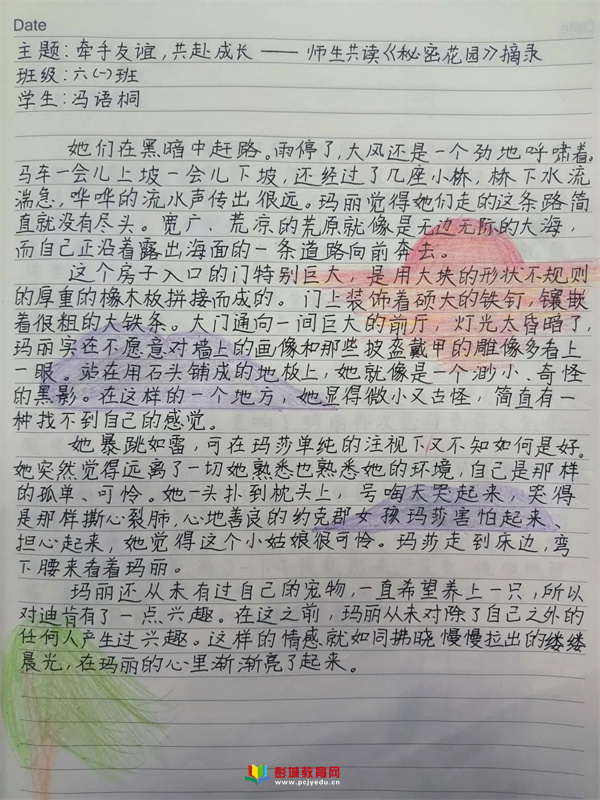 Date
主题：牵手友谊，共赴成长 —— 师生共读《秘密花园》摘录
班级：六(一)班
学生：冯语桐
她们在黑暗中赶路。雨停了，大风还是一个劲地呼啸着。
马车一会儿上坡一会儿下坡，还经过了几座小林，林下水流
湍急，哗哗的流水声传出很远。玛丽觉得她们走的这条路简
直就没有尽头。宽广、荒凉的荒原就像是无边无际的大海，
而自己正沿着露出海面的一条道路向前奔去。
这个房子入口的门特别巨大，是用大块的形状不规则
的厚重的橡木板拼接而成的。门上装饰着硕大的铁钉，镶嵌
着很粗的大铁条。大门通向一间巨大的前厅，灯光太昏暗了，
玛丽实在不愿意对墙上的画像和那些披盔戴甲的雕像多看上
一眼。站在用石头铺成的地板上，她就像是一个渺小、奇怪
的黑影。在这样的一个地方，她显得微小又古怪，简直有一
种找不到自己的感觉。
她暴跳如雷，可在玛莎单纯的注视下又不知如何是好。
她突然觉得远离了一切她熟悉也熟悉她的环境，自己是那样
的孤单、可怜。她一头扑到枕头上，号啕大哭起来，哭得
是那样撕心裂肺，心地善良的约克郡女孩玛莎害怕起来、
担心起来，她觉得这个小姑娘很可怜。玛莎走到床边，弯
下腰来看着玛丽。
玛丽还从未有过自己的宠物，一直希望养上一只，所以
对迪肯有了一点兴趣。在这之前，玛丽从未对除了自己之外的
任何人产生过兴趣。这样的情感就如同拂晓慢慢拉出的缕缕
晨光，在玛丽的心里渐渐亮了起来。
彭城教育网
www.pcjyedu.cn